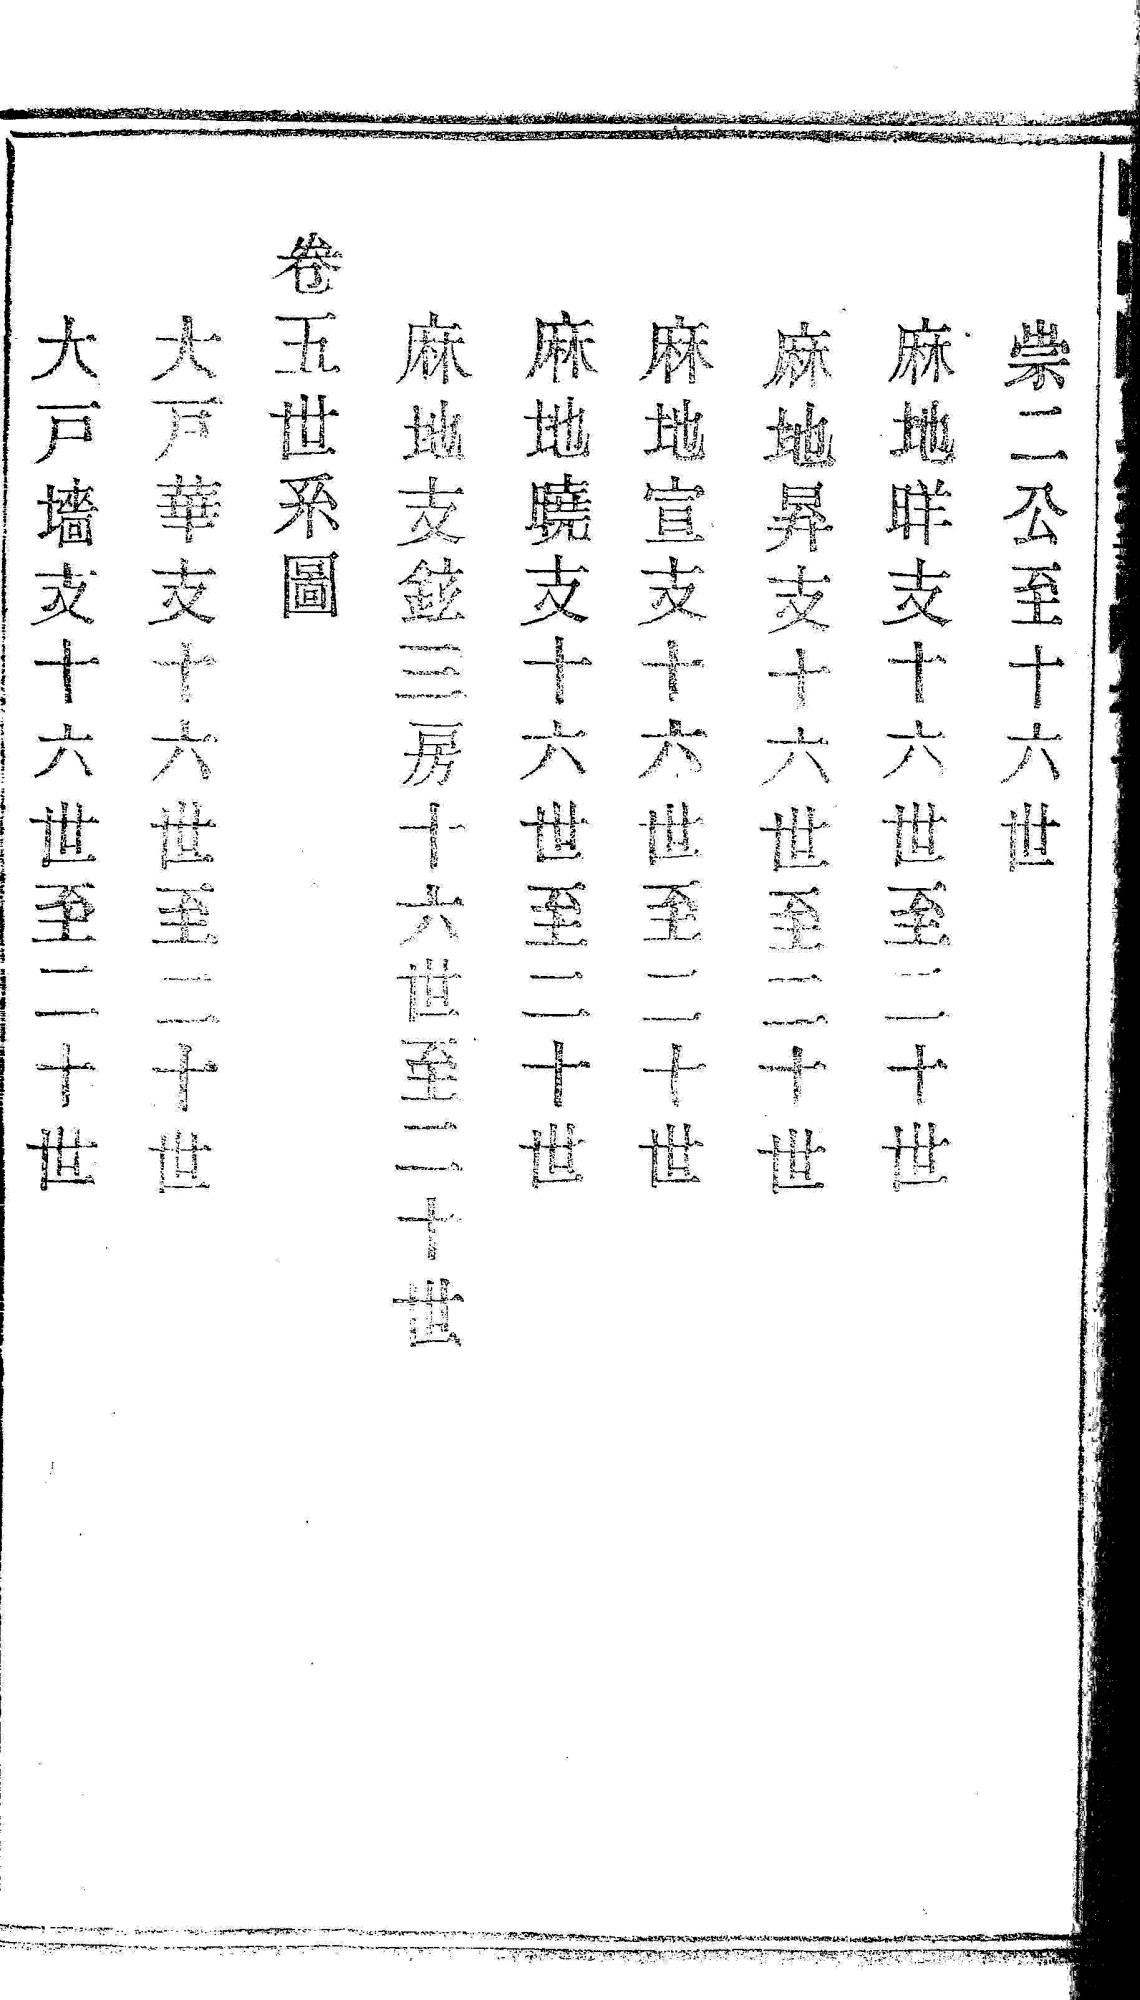 崇二公至十六世
麻地昍支十六世至二十世
麻地昇支十六世至二十世
麻地宣支十六世至二十世
麻地曉支十六世至二十世
麻地支鉉三房十六世至二十世
卷五世系圖
大戸華支十六世至二十世
大戸墻支十六世至二十世